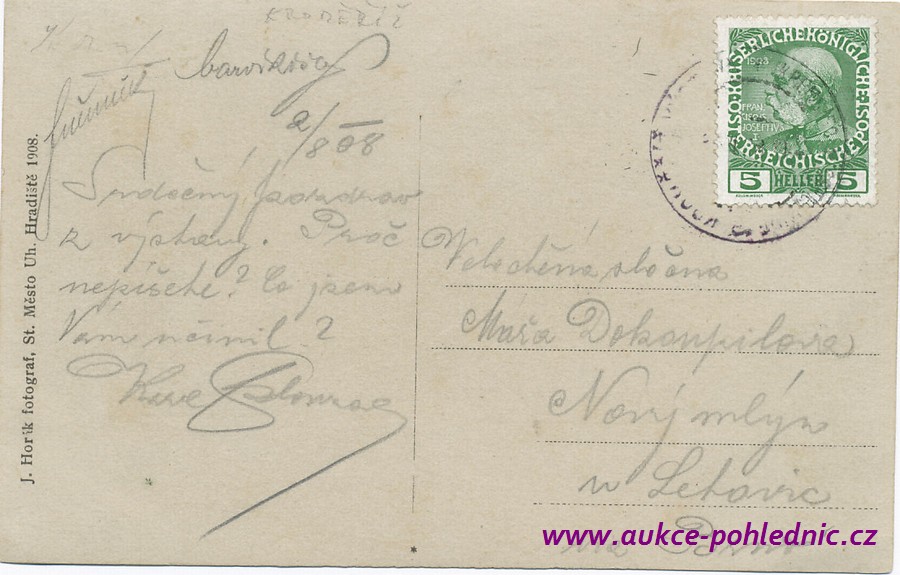 KROMĚŘÍŽ
2/8 08
Srdečný pozdrav
z výstavy. Proč
nepíšete? Co jsem
Vám učinil?
J. Horík fotograf, St. Město Uh. Hradiště 1908.
KAISERLICHEKÖNIGLICHE
ÖSTERREICHISCHE POST
5 HELLER 5
Velectěná slečna
Máňa Dokoupilova
Nový mlýn
u Letovic
www.aukce-pohlednic.cz